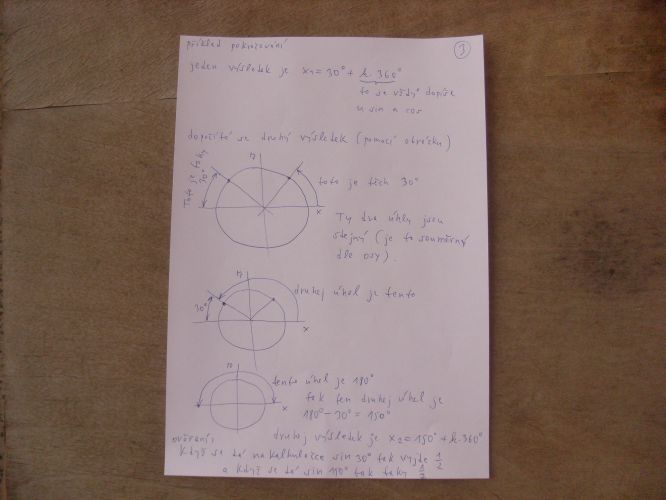 příklad pokračování
3
jeden výsledek je x₁=30°+k.360°
to se vždy dopíše
u sin a cos
dopočítá se druhý výsledek (pomocí obrázku)
Toto je taky
30°
y
toto je těch 30°
x
Ty dva úhly jsou
stejný (je to souměrný
dle osy).
y
druhej úhel je tento
30°
x
y
tento úhel je 180°
tak ten druhej úhel je
x
180°-30°=150°
druhej výsledek je x₂=150°+k.360°
ověření:
Když se dá na kalkulačce sin 30° tak vyjde 1/2
a když se dá sin 150° tak taky 1/2